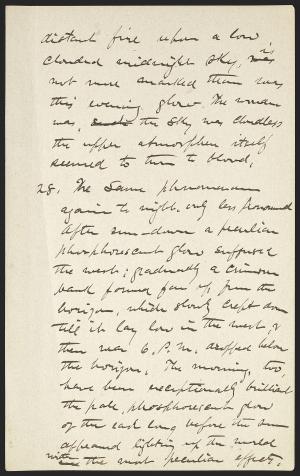 distant fire upon a low
clouded midnight sky, is
not more marked than was
this evening glow. The moon
was, the sky was cloudless
the upper atmosphere itself
seemed to turn to blood.
28. The same phenomenon
again to night, only less pronounced
After sun-down a peculiar
phosphorescent glow suffused
the west; gradually a crimson
band formed far up from the
horizon, which slowly crept down
till it lay low in the west, &
then near 6. P.M. dropped below
the horizon. The morning, too,
have been exceptionally brilliant
the pale, phosphorescent glow
of the east long before the sun
appeared lighting up the world
with the most peculiar effects.